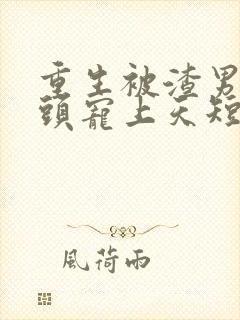 重生被渣男
頭寵上天短
風荷雨